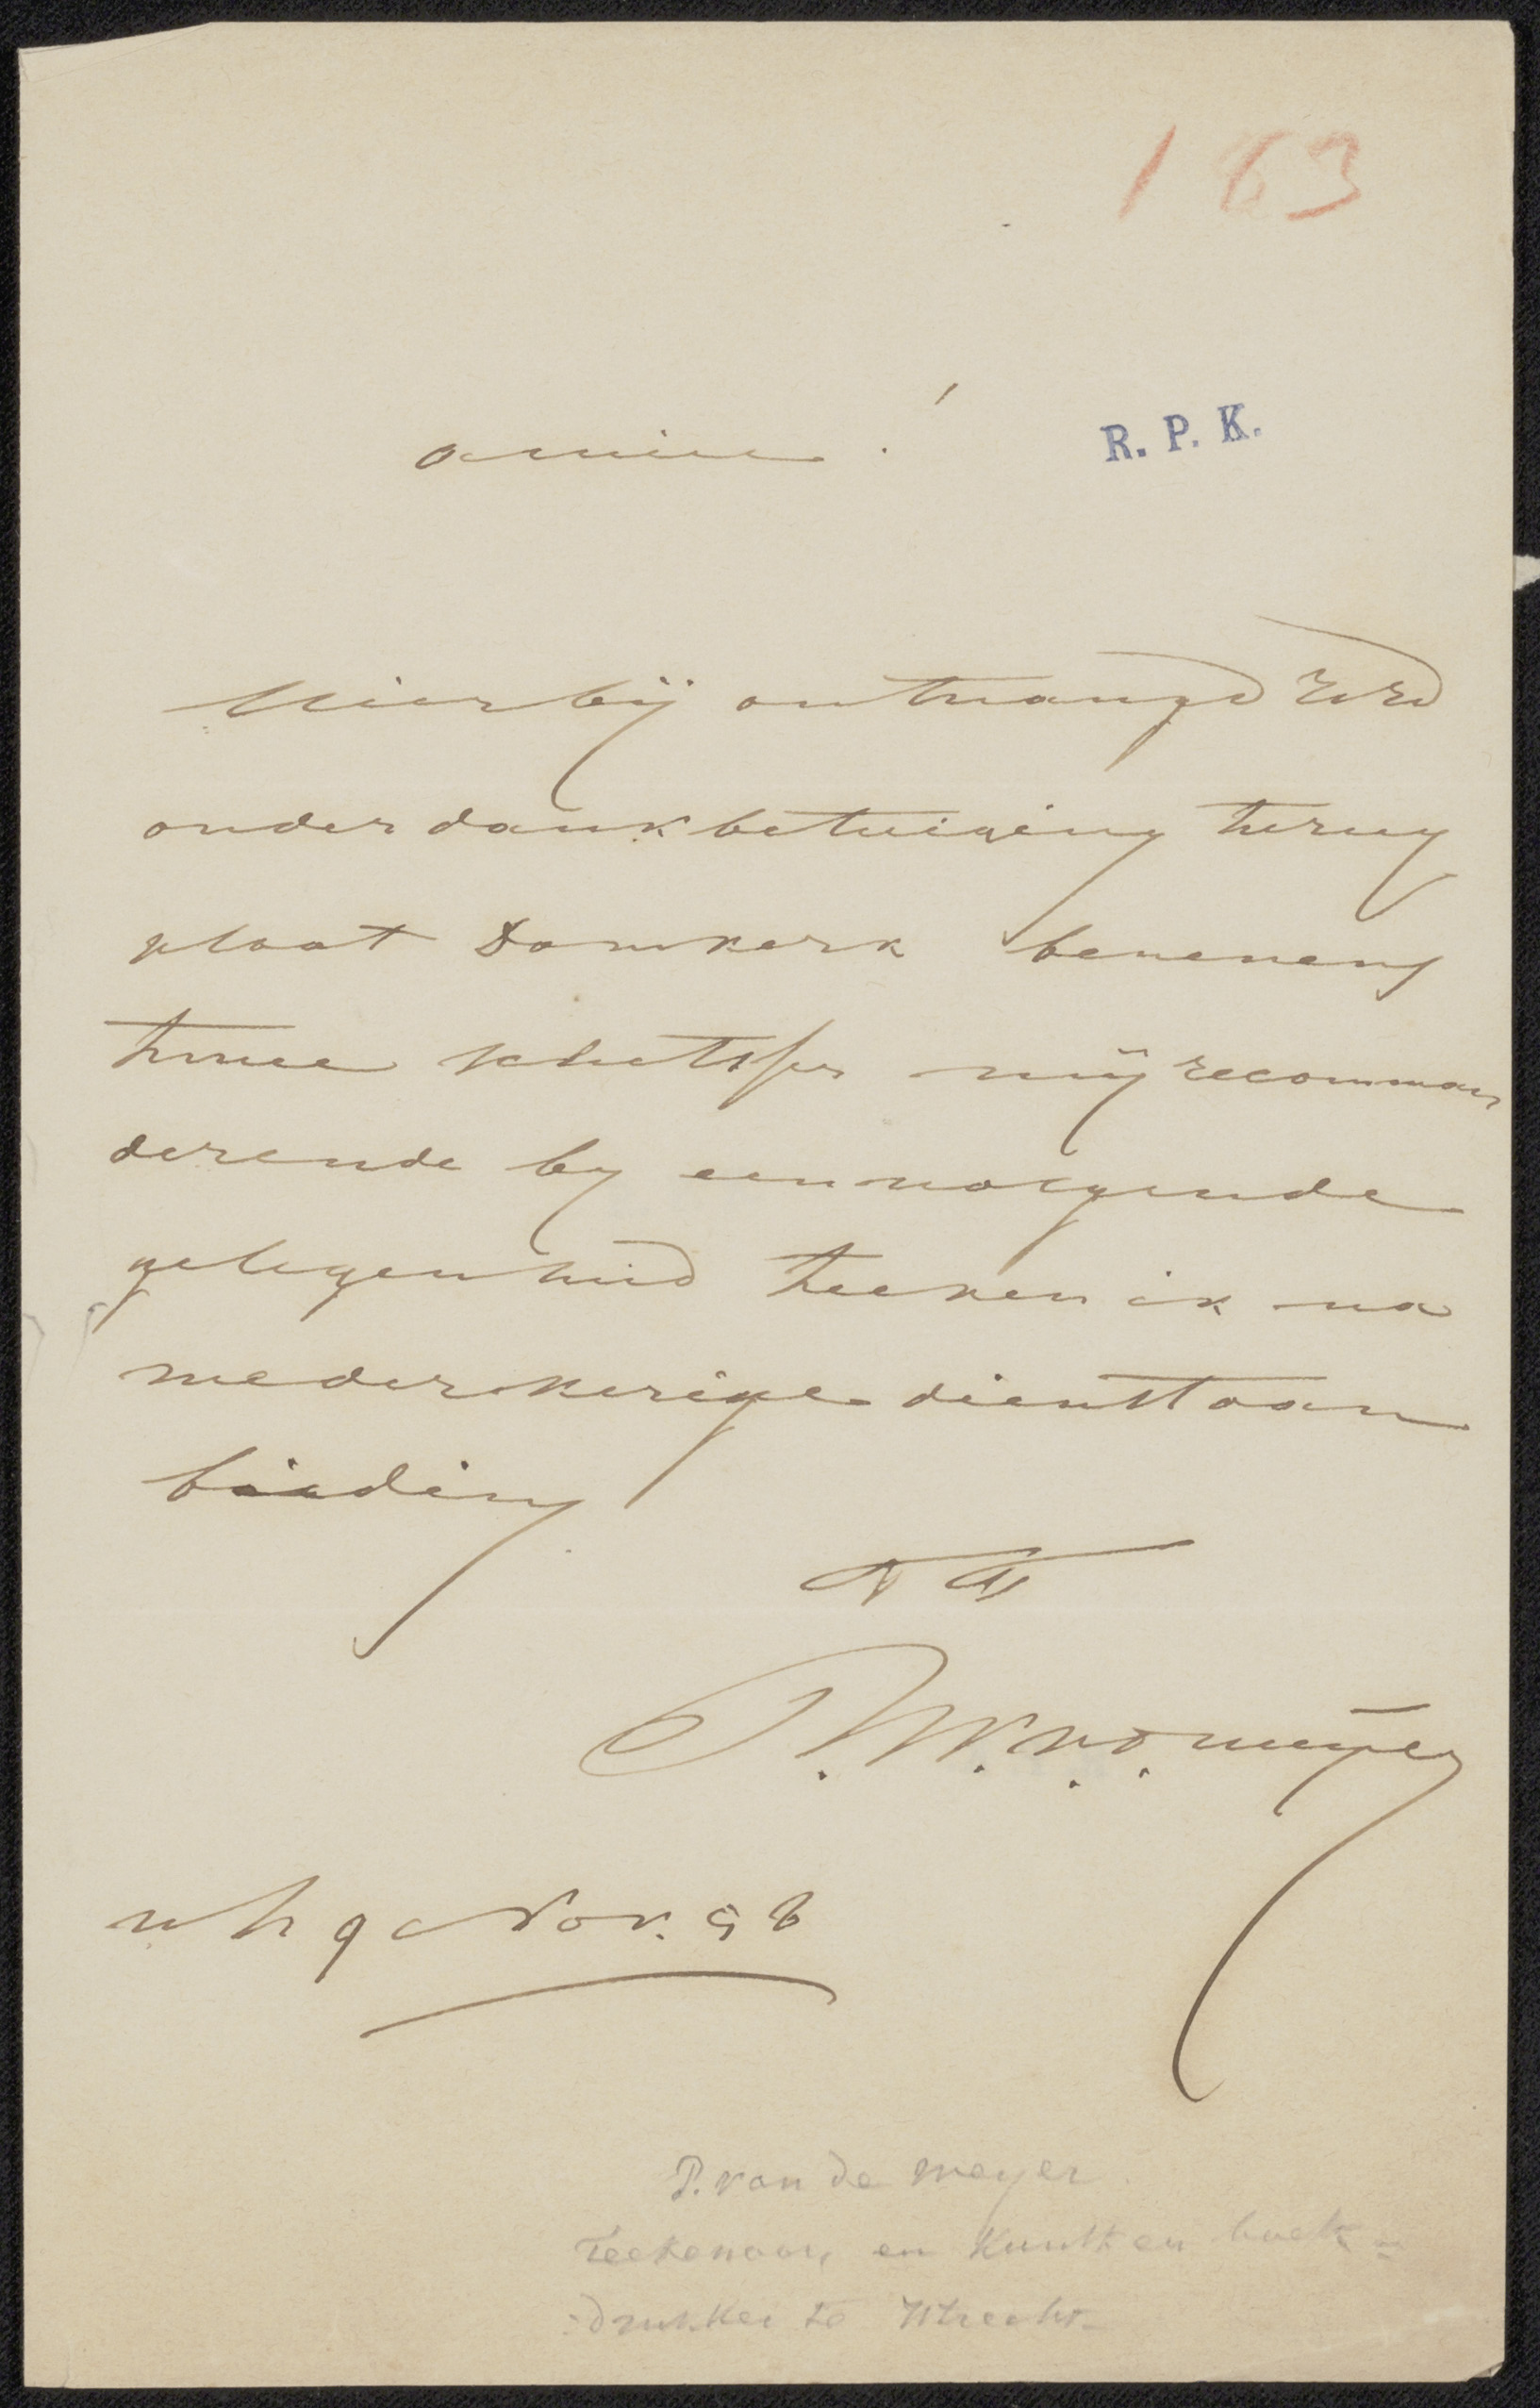 183
R. P. K.
amice!
Hierbij ontvangd UEd
onder dankbetuiging terug
plaat Domkerk benevens
twee schetsjes mij recomman
derende by een volgende
gelegenheid teeken ik na
wederkerige dienstaan
bieding
TT
P. W. v. d. Weijer
Utr 9 Nov. 58
P. van de Weyer
Teekenaar, en Kunst en boek=
=drukker te Utrecht